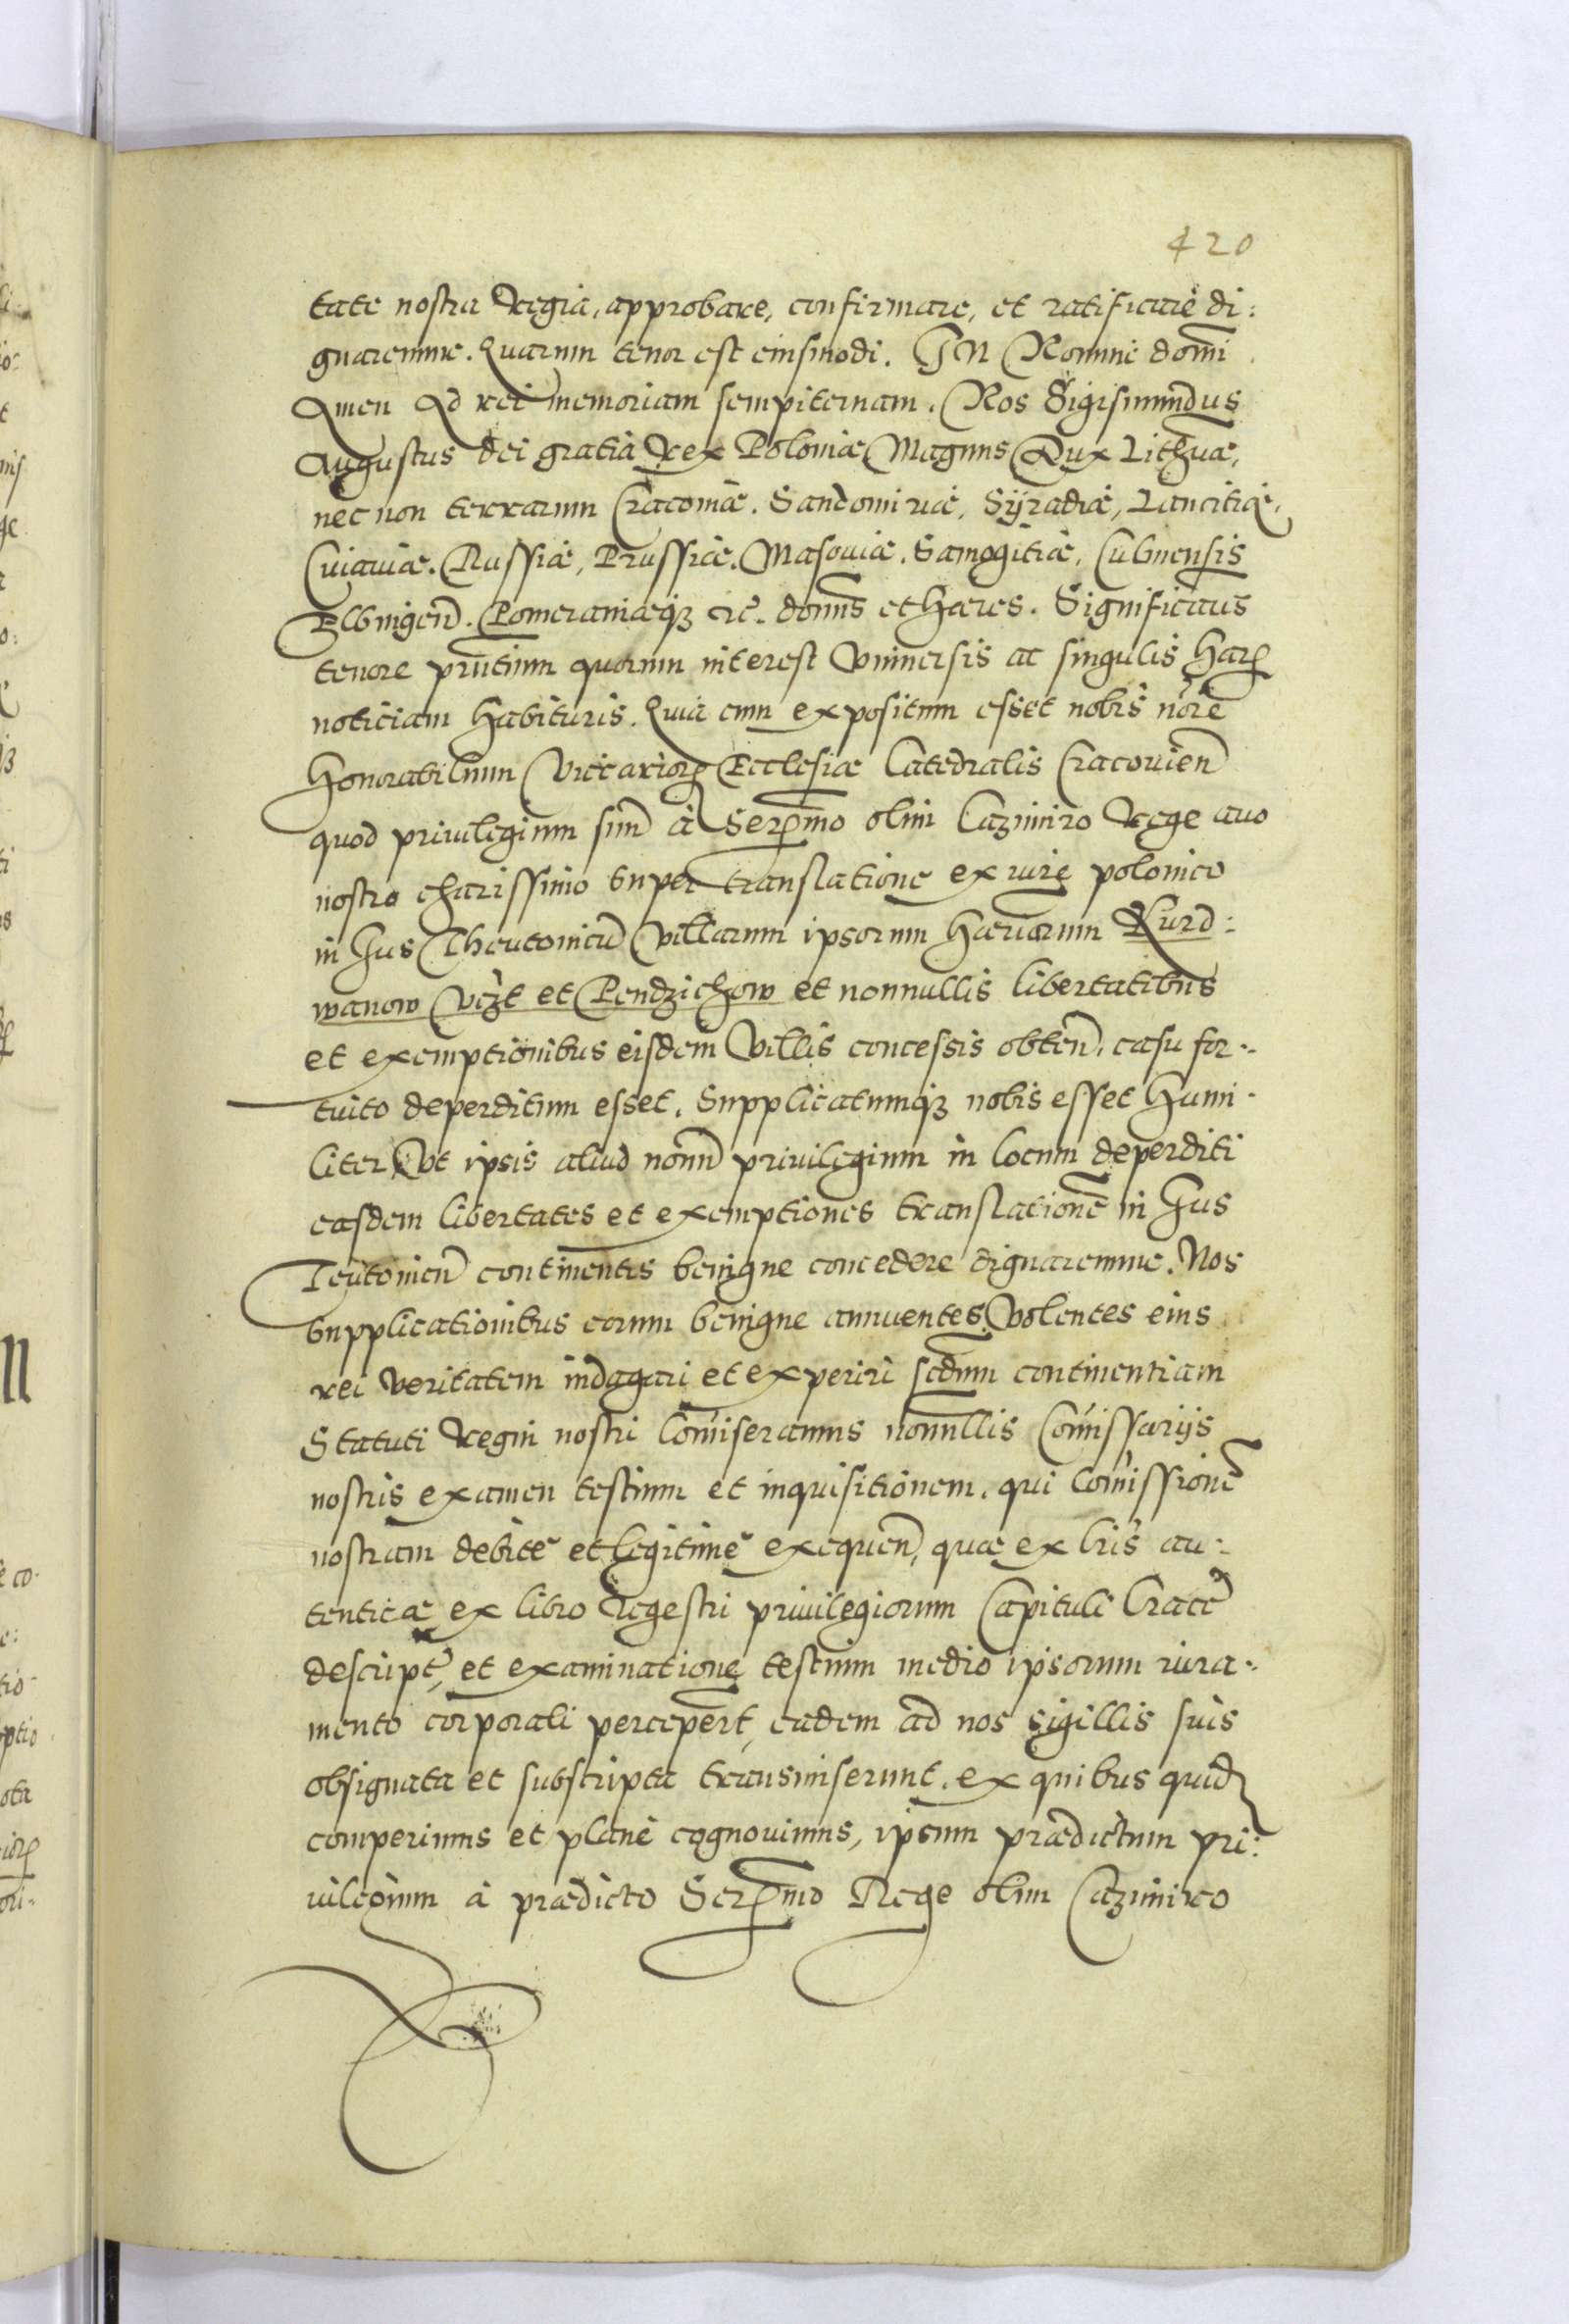 420
tate nostra Regia, approbare, confirmare, et ratificare di:
gnaremur. Quarum tenor est eiusmodi. IN Nomine domī
Amen Ad rei memoriam sempiternam. Nos Sigismundus
Augustus dei gratia Rex Poloniæ Magnus Dux Lithuæ,
nec non terrarum Cracoviæ, Sandomiriæ, Syradiæ, Lanciciæ,
Cuiaviæ, Russiæ, Prussiæ, Masoviæ, Samogitiæ, Culmensis
Elbingen̄. Pomeraniæq3 etc̄. domn̄s et Hæres. Significamus
tenore prn̄tium quorum interest Universis ac singulis Har
noticiam Habituris. Quia cum expositum esset nobis nōīe
Honorabilium Vicarior Ecclesiæ Catedralis Cracovien̄
quod privilegium suū à Ser̄mo olim Cazimiro Rege avo
nostro charissimo super translatione ex iure polonico
in Jus Theutonicū Villarum ipsorum Hæc viarum Kurd:
wanow Vi3t et Pendzichow et nonnullis libertatibus
et exemptionibus eisdem Villis concessis obten̄. casu for-
tuito deperditum esset. Supplicatumq3 nobis esset Humi-
liter Vt ipsis aliud novū privilegium in locum deperditi
easdem libertates et exemptiones translationē in Jus
Teutonicū continentes benigne concedere dignaremur. Nos
supplicationibus eorum benigne annuentes, Volentes eius
rei veritatem indagari et experiri secdūm continentiam
Statuti Regni nostri Com̄iseramus nonnullis Com̄issariis
nostris examen testium et inquisitionem. qui Com̄issionē
nostram debite et legitime exequen̄, quæ ex lris au-
tenticæ ex libro Regestri privilegiorum Capituli Craccē
descript̄, et examinatione testium medio ipsorum iura-
mento corporali perceper̄t, eadem ad nos sigillis suis
obsignata et subscripta transmiserunt. ex quibus quid
comperimus et plane cognovimus, ipsum prædictum pri:
vilegium à prædicto Ser̄mo Rege olim Cazimiro